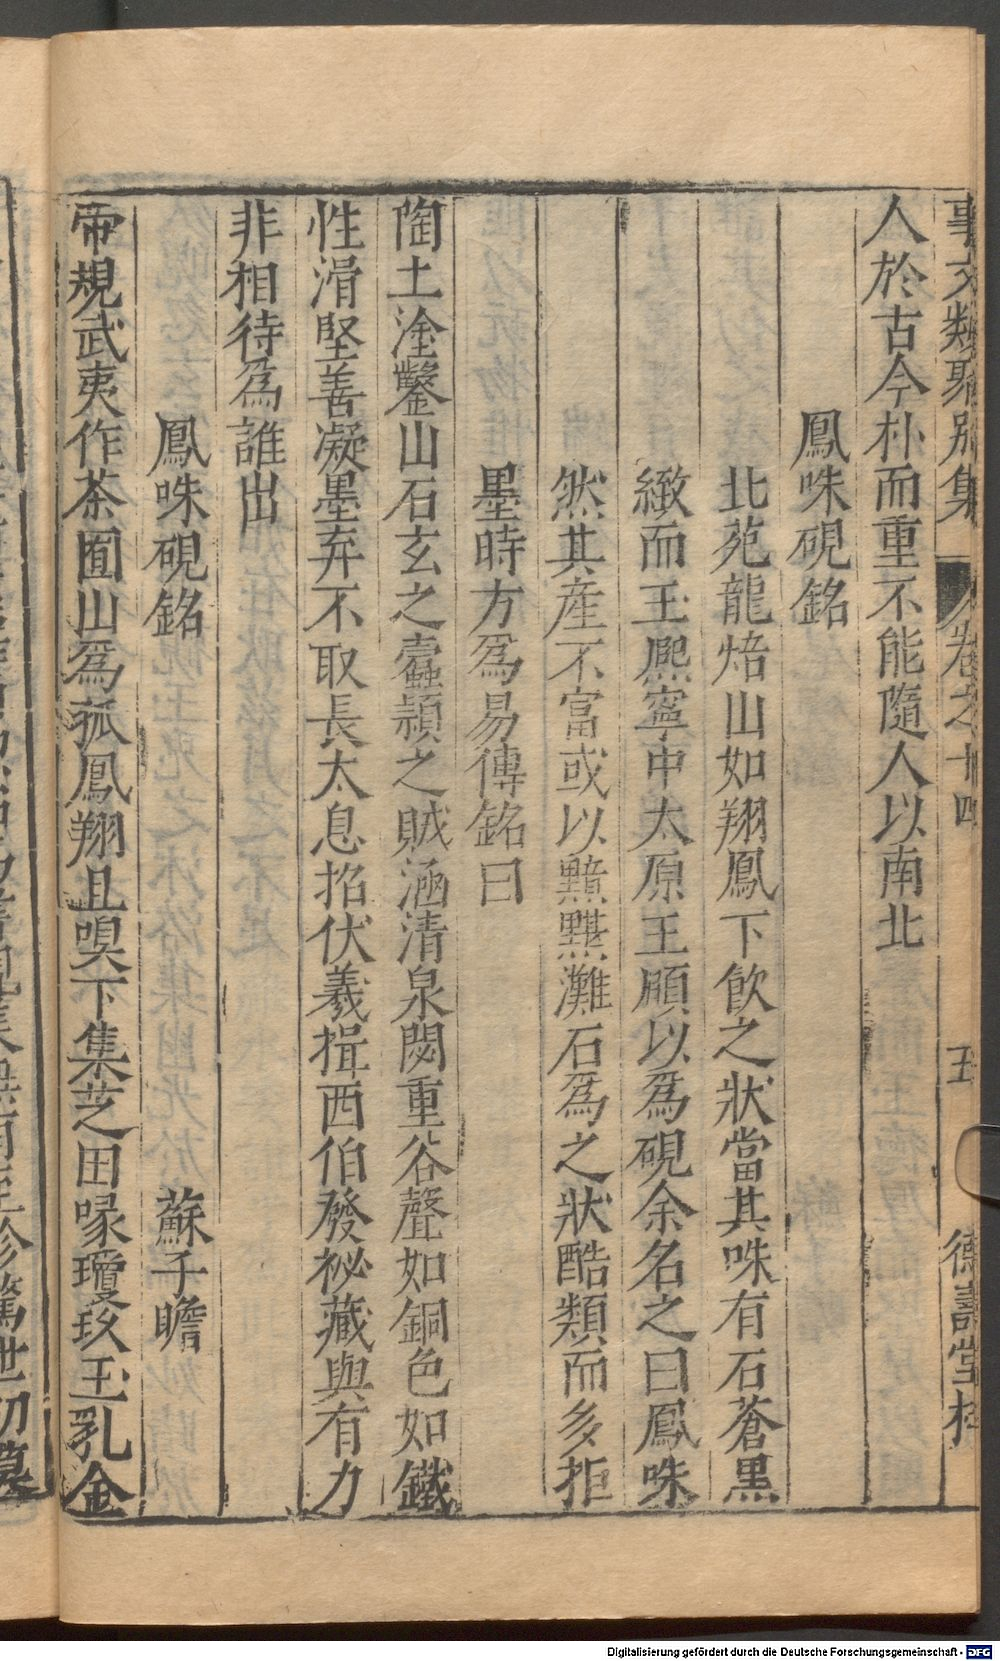 事文類聚別集 卷之十四 五 德壽堂梓
人於古今朴而重不能隨人以南北
鳳咮硯銘
北苑龍焙山如翔鳳下飲之狀當其咮有石蒼黑
緻而玉熈寧中太原王頤以爲硯余名之曰鳳咮
然其產不富或以黯黮灘石爲之狀酷類而多拒
墨時方爲易傳銘曰
陶土塗鑿山石玄之蠹頴之賊涵清泉閟重谷聲如銅色如鐵
性滑堅善凝墨弃不取長太息招伏羲揖西伯發祕藏與有力
非相待爲誰出
鳳咮硯銘 蘇子瞻
帝規武夷作茶囿山爲孤鳳翔且嗅下集芝田啄瓊玖玉乳金
Digitalisierung gefördert durch die Deutsche Forschungsgemeinschaft - DFG